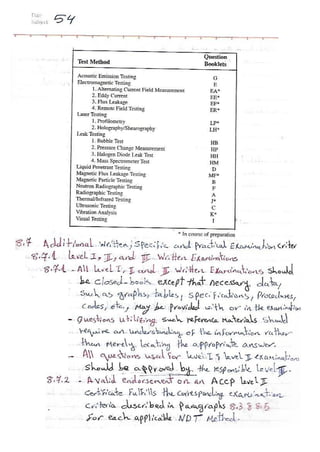 54
Test Method
Question
Booklets
Acoustic Emission Testing G
Electromagnetic Testing E
1. Alternating Current Field Measurement EA*
2. Eddy Current EE*
3. Flux Leakage EF*
4. Remote Field Testing ER*
Laser Testing
1. Profilometry LP*
2. Holography/Shearography LH*
Leak Testing
1. Bubble Test HB
2. Pressure Change Measurement HP
3. Halogen Diode Leak Test HH
4. Mass Spectrometer Test HM
Liquid Penetrant Testing D
Magnetic Flux Leakage Testing MF*
Magnetic Particle Testing B
Neutron Radiographic Testing F
Radiographic Testing A
Thermal/Infrared Testing J*
Ultrasonic Testing C
Vibration Analysis K*
Visual Testing I
* In course of preparation
8.7 Additional Written, Specific and Practical Examination Criter
8.7.1 Level I, II, and III Written Examinations
8.7.1 - All Level I, II and III Written Examinations should
be closed-book except that necessary data,
such as graphs, tables, specifications, procedures,
codes, etc., may be provided with or in the examination
- questions utilizing such reference materials should
require an understanding of the information rather
than merely locating the appropriate answer.
- All questions used for Level I & Level II examinations
should be approved by the responsible Level III.
8.7.2 - A valid endorsement on an ACCP Level II
certificate fulfills the corresponding examination
criteria described in Paragraphs 8.3 & 8.5
for each applicable NDT Method.